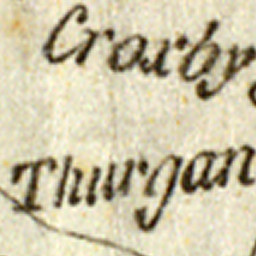 Croxby
Thurgan